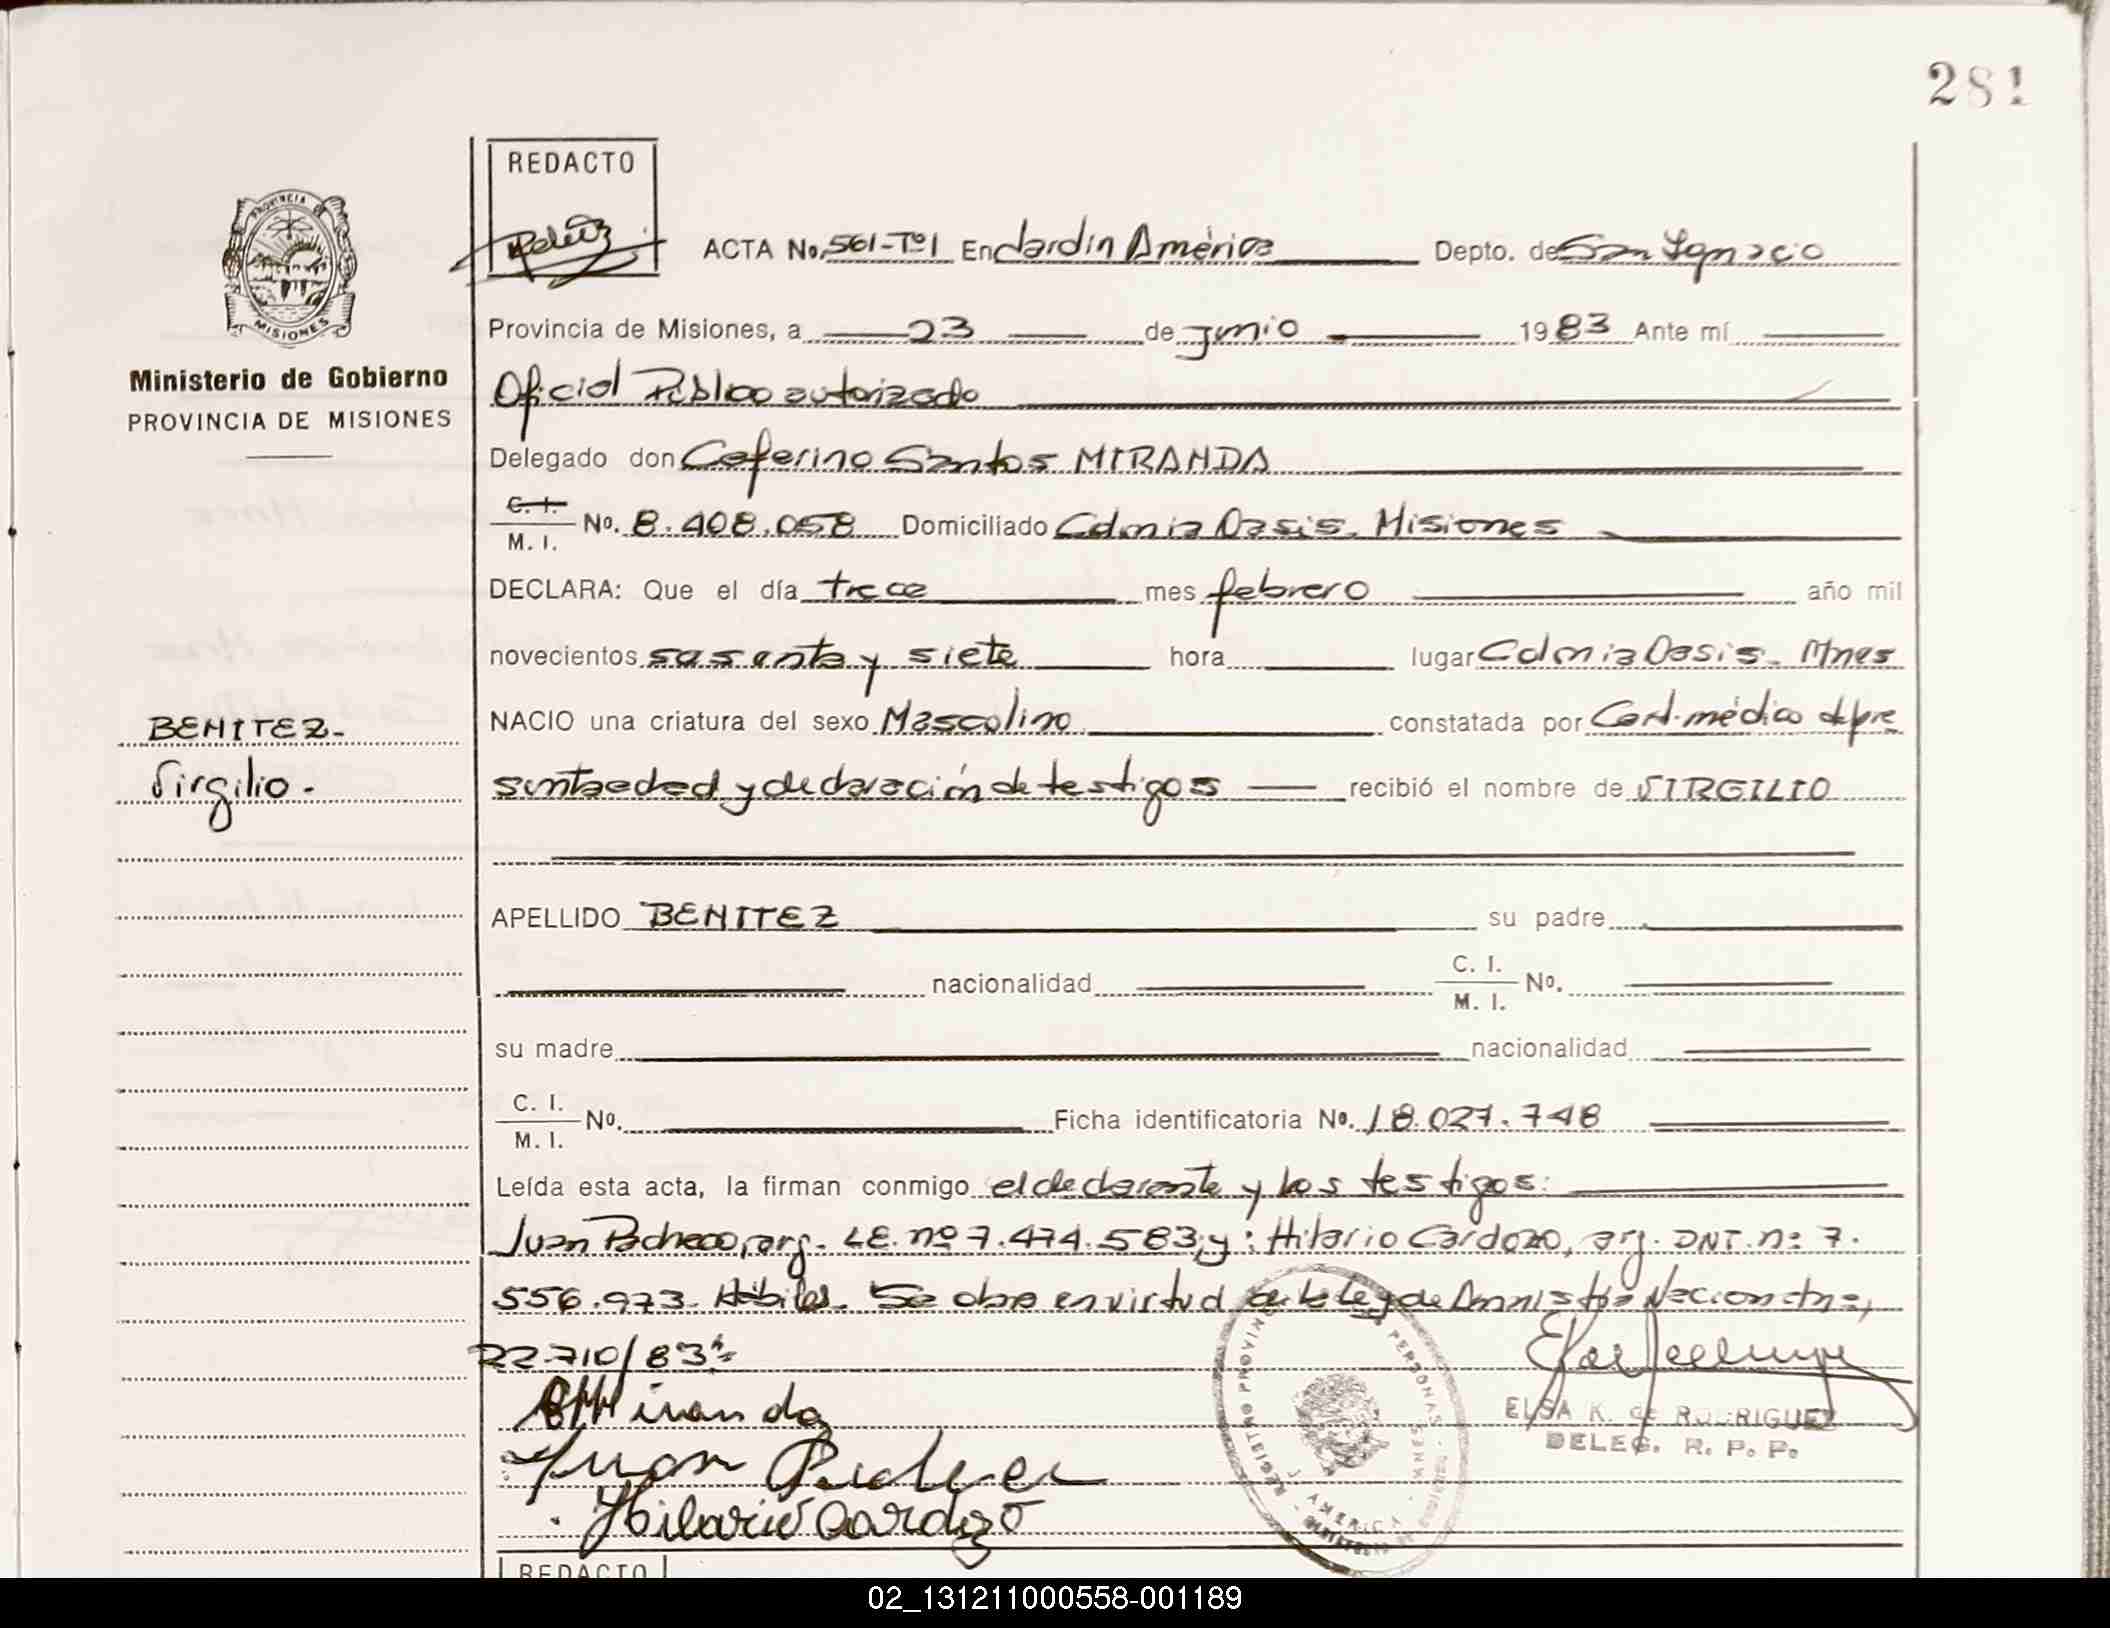 281
REDACTO
ACTA No. 561-Tº1 En Jardín América Depto. de San Ignacio
Provincia de Misiones, a 23 de junio 1983 Ante mí
Oficial Público autorizado
Delegado don Ceferino Santos MIRANDA
C. I.
M. I.
No. 8.408.058 Domiciliado Colonia Oasis. Misiones
DECLARA: Que el día trece mes febrero año mil
novecientos sesenta y siete hora lugar Colonia Oasis. Mnes
NACIO una criatura del sexo Mascolino constatada por Cert. médico de pre
sunta edad y declaración de testigos recibió el nombre de VIRGILIO
APELLIDO BENITEZ su padre
nacionalidad C. I.
M. I.
No.
su madre nacionalidad
C. I.
M. I.
No. Ficha identificatoria No. 18.027.748
Leída esta acta, la firman conmigo el declarante y los testigos:
Juan Pacheco, arg. LE. nº 7.474.583, y: Hilario Cardozo, arg. DNI. nº 7.
556.973. Hábiles. Se labra en virtud de la Ley de Amnistía Nacional nº,
22.710/83
Miranda
Juan Pacheco
Hilario Cardozo
ELSA K. de RODRIGUEZ
DELEG. R. P. P.
REGISTRO PROVIN PERSONAS
AMERICA MNES
PROVINCIA DE
MISIONES
Ministerio de Gobierno
PROVINCIA DE MISIONES
BENITEZ.
Virgilio.
REDACTO
02_131211000558-001189